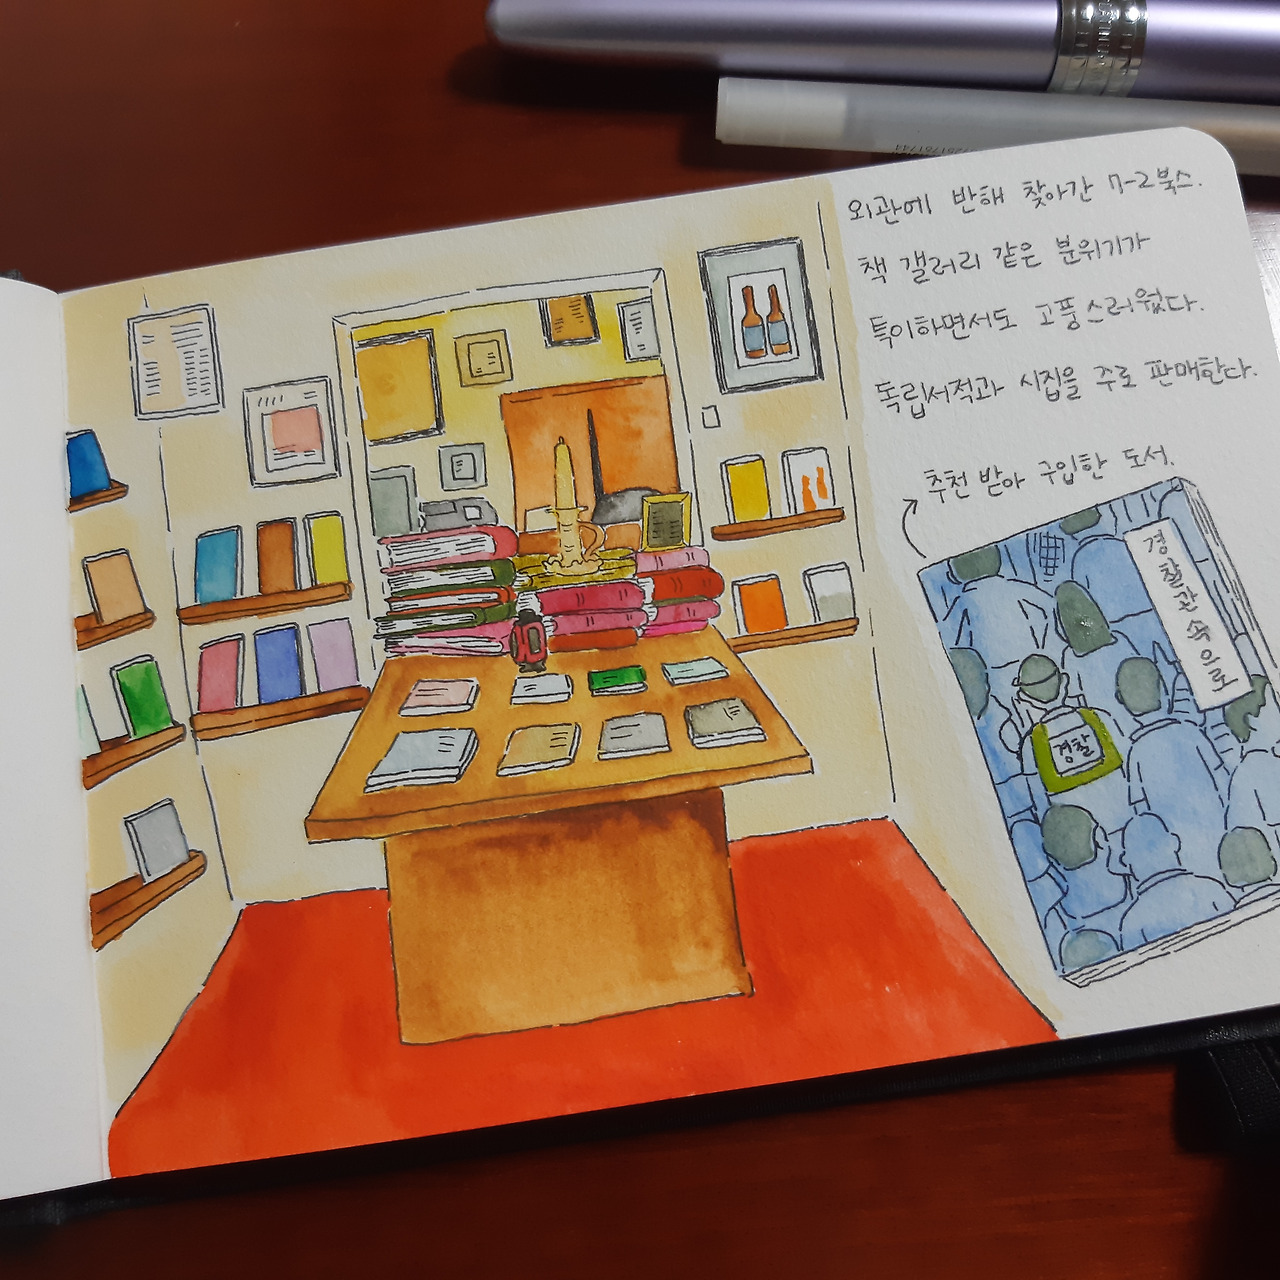 외관에 반해 찾아간 7-2북스.
책 갤러리 같은 분위기가
특이하면서도 고풍스러웠다.
독립서적과 시집을 주로 판매한다.
추천 받아 구입한 도서.
경찰관 속으로
경찰